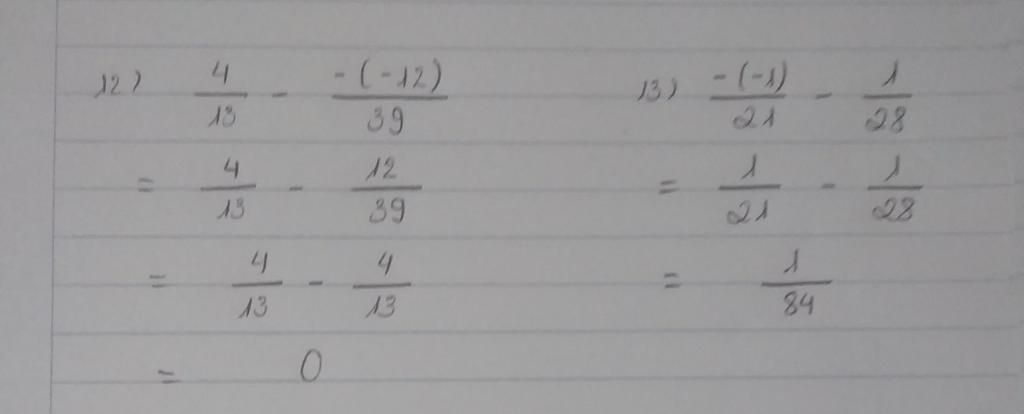 12) 4/13 - -(-12)/39
= 4/13 - 12/39
= 4/13 - 4/13
= 0
13) -(-1)/21 - 1/28
= 1/21 - 1/28
= 1/84